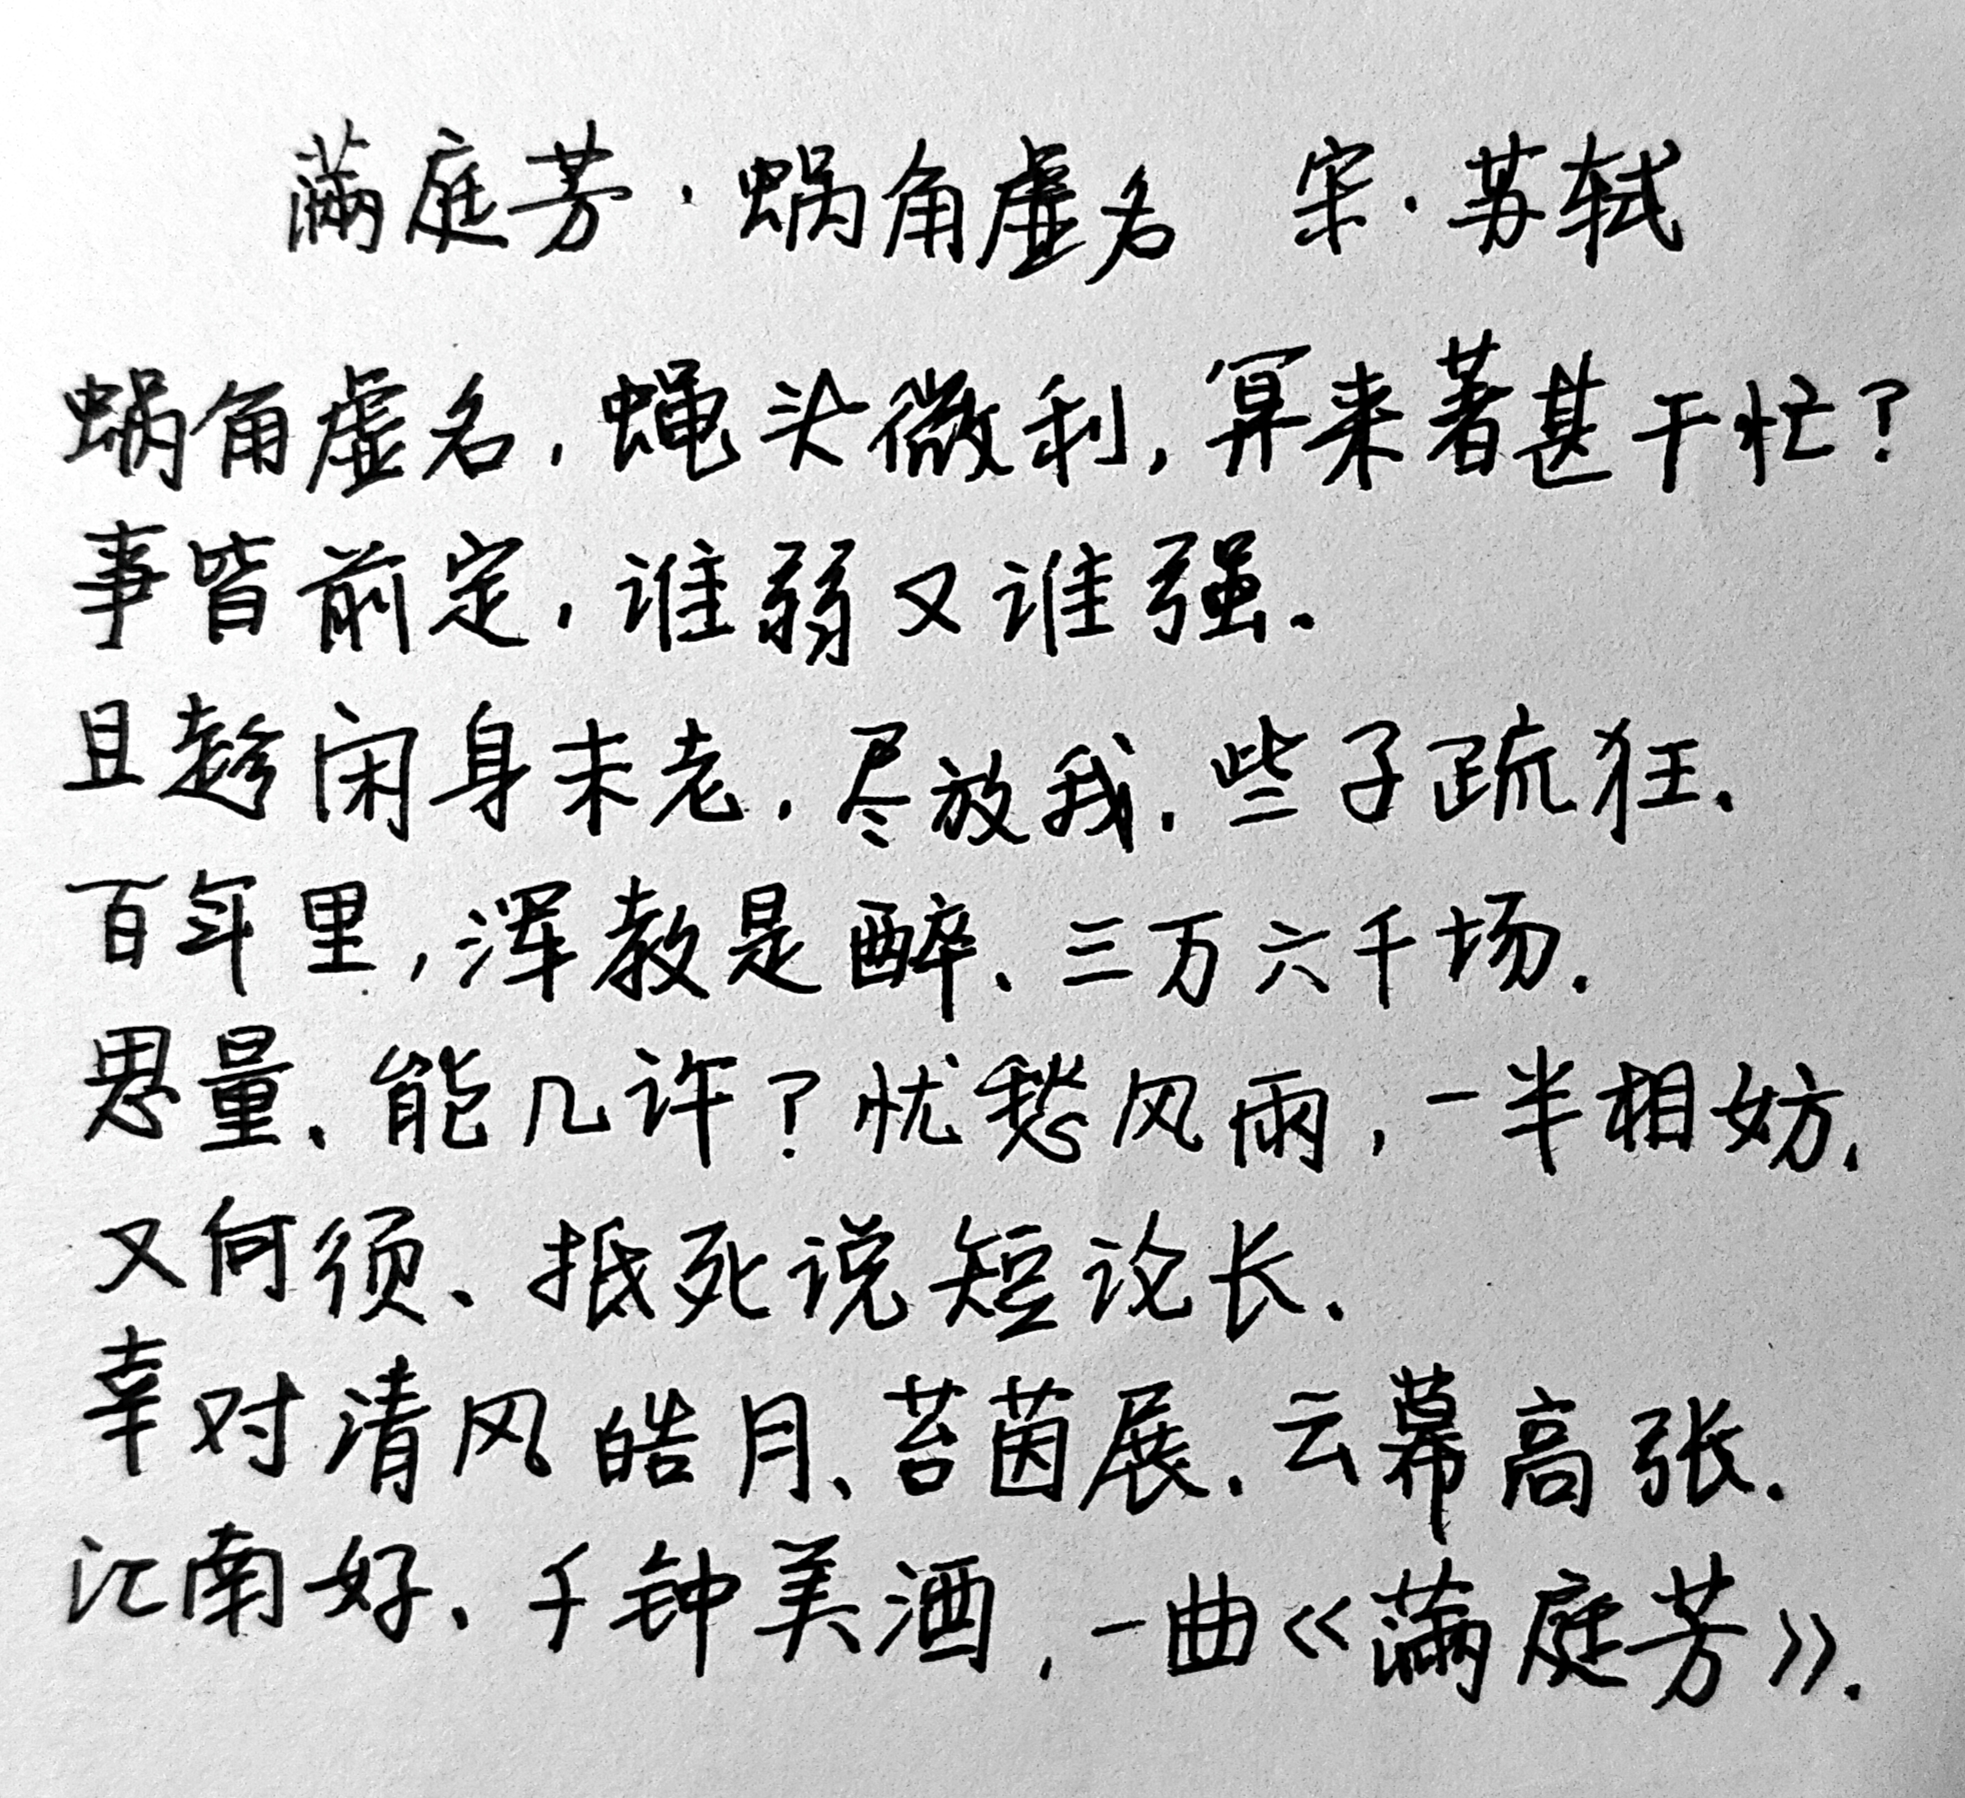 满庭芳·蜗角虚名 宋·苏轼
蜗角虚名,蝇头微利,算来著甚干忙?
事皆前定,谁弱又谁强.
且趁闲身未老,尽放我,些子疏狂.
百年里,浑教是醉、三万六千场.
思量、能几许?忧愁风雨,一半相妨.
又何须、抵死说短论长.
幸对清风皓月、苔茵展,云幕高张.
江南好、千钟美酒,一曲《满庭芳》.